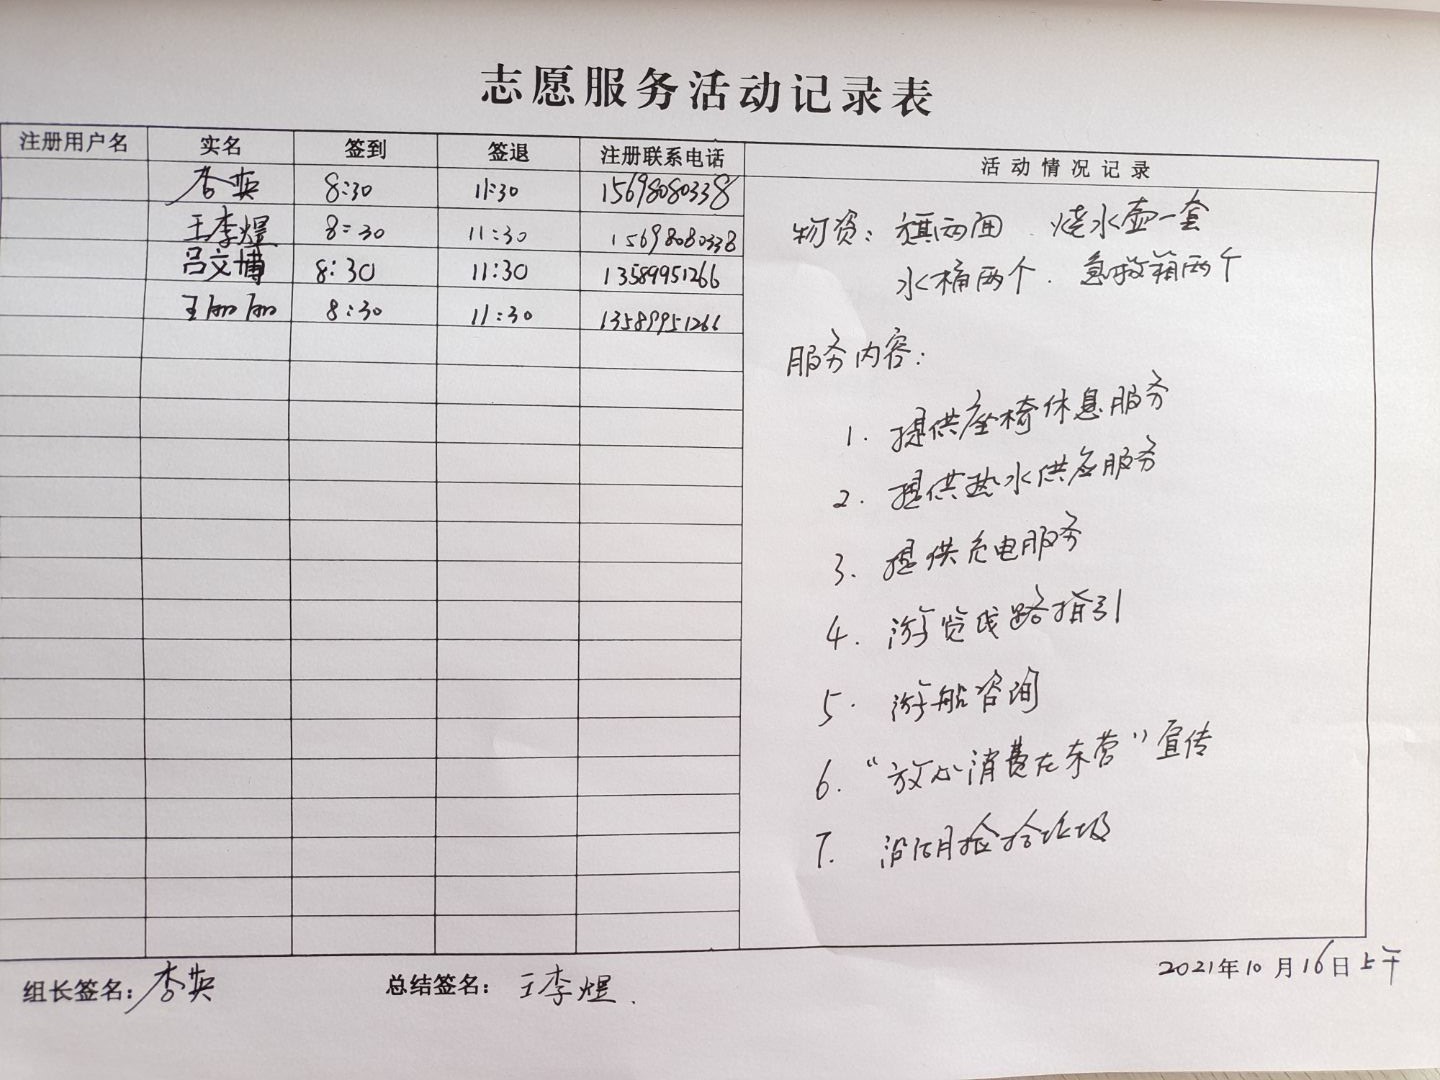 志愿服务活动记录表
注册用户名 实名 签到 签退 注册联系电话 活动情况记录
李英 8:30 11:30 15698080338
王李煜 8:30 11:30 15698080338
吕文博 8:30 11:30 13589951266
王丽丽 8:30 11:30 13589951266
物资：旗两面 烧水壶一套
水桶两个、急救箱两个
服务内容：
1. 提供座椅休息服务
2. 提供热水供应服务
3. 提供充电服务
4. 游览线路指引
5. 游船咨询
6. “放心消费在东营”宣传
7. 沿湖捡拾垃圾
组长签名：李英 总结签名：王李煜.
2021年10月16日上午